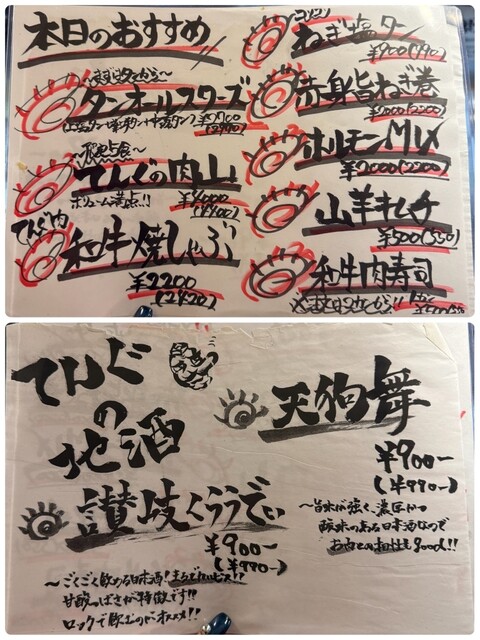 本日のおすすめ
〜まずはタンから〜
タンオールスターズ
¥2700
(2970)
てんぐの肉山!
ボリューム満点!!
¥4000
(4400)
和牛焼しゃぶ
¥2200
(2420)
ねぎ塩タン
¥900(990)
赤身旨ねぎ巻
¥2000(2200)
ホルモンMIX
¥2000(2200)
山羊キムチ
¥500(550)
和牛肉寿司
てんぐ
の
地酒
讃岐くらうでぃ
¥900-
(¥990-)
〜ごくごく飲める日本酒!まるでカルピス!!
甘酸っぱさが特徴です!!
ロックで飲むのがオススメ!!
天狗舞
¥900-
(¥990-)
〜旨味が強く、濃厚かつ
酸味のある日本酒なので
お肉との相性もgood!!